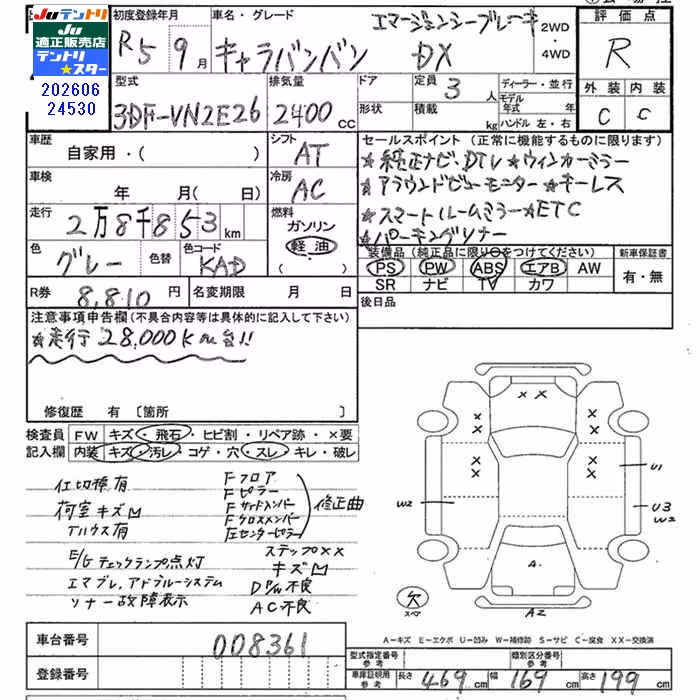 Juテントリ
Ju
適正販売店
テントリ
★スター
202606
24530
初度登録年月
R5 9月
車名・グレード
キャラバンバン DX
エマージェンシーブレーキ
2WD
・
4WD
評価点
R
外装 内装
C C
型式
3DF-VN2E26
排気量
2400 cc
ドア
形状
定員 3 人
積載 kg
ディーラー・並行
モデル年式 年
ハンドル 左・右
車歴
自家用・( )
シフト
AT
車検
年 月( 日)
冷房
AC
走行
2万8千853 km
燃料
ガソリン
軽油
( )
色
グレー
色替
色コード
KAD
R券 8,810 円
名変期限 月 日
セールスポイント (正常に機能するものに限ります)
★純正ナビ・DTV★ウィンカーミラー
★アラウンドビューモニター★キーレス
★スマートルームミラー★ETC
★パーキングソナー
装備品 (純正品に限り○をつけてください)
PS PW ABS エアB AW
SR ナビ TV カワ
新車保証書
有・無
後日品
注意事項申告欄(不具合内容等は具体的に記入して下さい)
★走行28,000km台!!
修復歴 有 〔箇所 〕
検査員
記入欄
FW キズ・飛石・ヒビ割・リペア跡・×要
内装 キズ・汚レ・コゲ・穴・スレ・キレ・破レ
仕切棒有
荷室キズ凹
テルウス有
Fフロア
Fピラー
Fサイドメンバー
Fクロスメンバー
左センターピラー
修正曲
ステップ××
キズ凹
DP/W不良
AC不良
E/Gチェックランプ点灯
エマブレ,アドブルーシステム
ソナー故障表示
××
×
×
×
×
×
×
×
×
U1
W2
U3
W2
A.
A2
欠
スペア
A−キズ E−エクボ U−凹み W−補修跡 S−サビ C−腐食 XX−交換済
車台番号 008361
登録番号
型式指定番号
参考
類別区分番号
参考
車庫証明用
参考
長さ 469 cm 幅 169 cm 高さ 199 cm